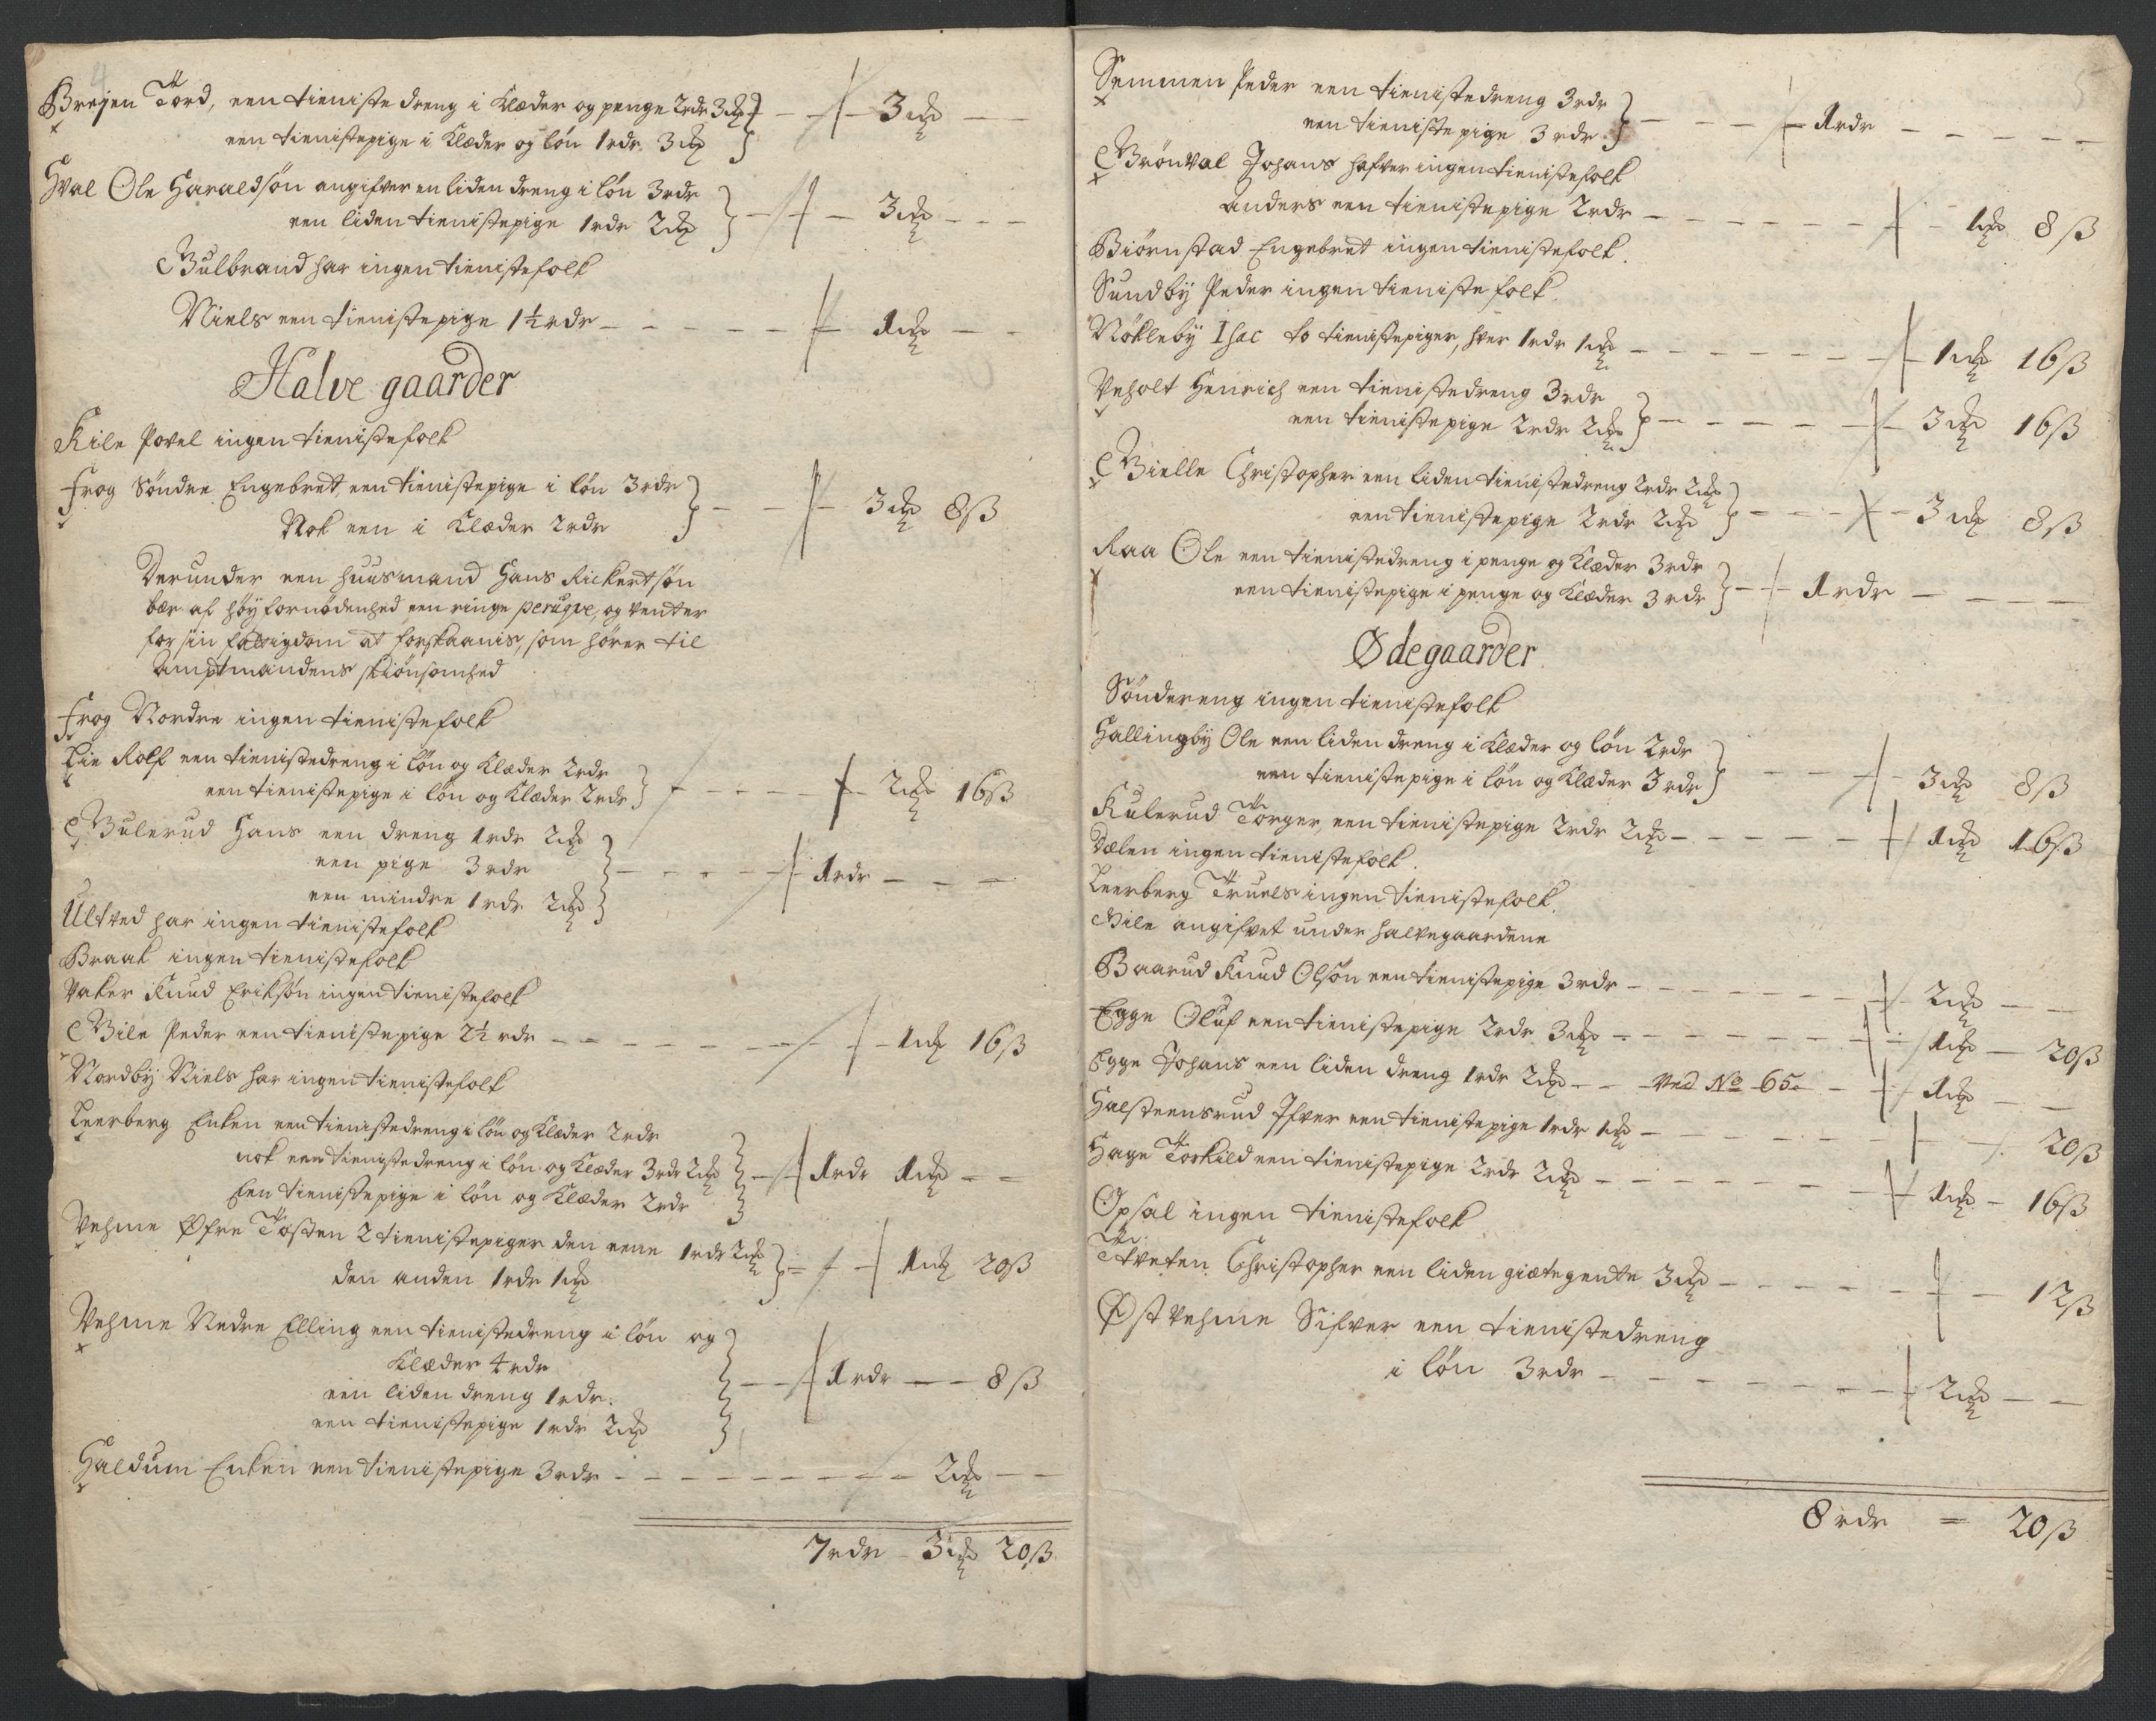 4
Breien Tord, een tieniste dreng i Klæder og penge 2 rdr 3 ort — 3 ort — —
een tienistepige i Klæder og løn 1 rdr. 3 ort
Hval Ole Haraldsøn angifver en liden dreng i løn 3 rdr
een liden tienistepige 1 rdr 2 ort — 3 ort — —
Gulbrand har ingen tienistefolk
Niels een tienistepige 1½ rdr — 1 ort — —
Halve gaarder
Kile Povel ingen tienistefolk
Frog Søndre Engebret, een tienistepige i løn 3 rdr
Nok een i Klæder 2 rdr — 3 ort 8 ß
Derunder een huusmand Hans Rickertsøn
bær af høy fornødenhed een ringe peruqve, og venter
for sin fattigdom at forskaanis, som hører til
Amptmandens skiønsomhed
Frog Nordre ingen tienistefolk
Lie Rolf een tienistedreng i løn og Klæder 2 rdr
een tienistepige i løn og Klæder 2 rdr — 2 ort 16 ß
Bulerud Hans een dreng 1 rdr 2 ort
een pige 3 rdr — 1 rdr — — —
een mindre 1 rdr 2 ort
Ultved har ingen tienistefolk
Braak ingen tienistefolk
Vaker Knud Eriksøn ingen tienistefolk
Bile Peder een tienistepige 2½ rdr — 1 ort 16 ß
Nordby Niels har ingen tienistefolk
Leerberg Enken een tienistedreng i løn og Klæder 2 rdr
nok een tienistedreng i løn og Klæder 3 rdr 2 ort — 1 rdr 1 ort — —
Een tienistepige i løn og Klæder 2 rdr
Vehme Øfre Tosten 2 tienistepiger den eene 1 rdr 2 ort
den anden 1 rdr 1 ort — 1 ort 20 ß
Vehme Nedre Elling een tienistedreng i løn og
Klæder 4 rdr
een liden dreng 1 rdr. — 1 rdr — — 8 ß
een tienistepige 1 rdr 2 ort
Haldum Enken een tienistepige 3 rdr — 2 ort — —
7 rdr 3 ort 20 ß
5
Semmen Peder een tienistedreng 3 rdr
een tieniste pige 3 rdr. — 1 rdr — — —
Grønval Johans hafver ingen tienistefolk
Anders een tienistepige 2 rdr — 1 ort 8 ß
Biørnstad Engebret ingen tienistefolk.
Sundby Peder ingen tieniste folk.
Nøkleby Isac to tienistepiger, hver 1 rdr 1 ort — 1 ort 16 ß
Veholt Henrich een tienistedreng 3 rdr
een tienistepige 2 rdr 2 ort — 3 ort 16 ß
Bielle Christopher een liden tienistedreng 2 rdr 2 ort
een tienistepige 2 rdr 2 ort — 3 ort 8 ß
Raa Ole een tienistedreng i penge og Klæder 3 rdr
een tienistepige i penge og Klæder 3 rdr — 1 rdr — — —
Ødegaarder
Søndereng ingen tienistefolk
Hallingby Ole een liden dreng i Klæder og løn 2 rdr
een tienistepige i løn og Klæder 3 rdr — 3 ort 8 ß
Kulerud Torger, een tienistepige 2 rdr 2 ort — 1 ort 16 ß
Dælen ingen tienistefolk.
Leerberg Truels ingen tienistefolk.
Bile angifvet under halvegaardene
Baarud Knud Olsøn een tienistepige 3 rdr — 2 ort — —
Egge Oluf een tienistepige 2 rdr 3 ort — 1 ort — 20 ß
Egge Johans een liden dreng 1 rdr 2 ort — ved No 65 — 1 ort — —
Halsteensrud Ifver een tienistepige 1 rdr 1 ort — 20 ß
Hage Torkild een tienistepige 2 rdr 2 ort — 1 ort — 16 ß
Opsal ingen tienistefolk
Tveten Christopher een liden giætegente 3 ort — 12 ß
Østvehme Sifver een tienistedreng
i løn 3 rdr — 2 ort — —
8 rdr = 20 ß